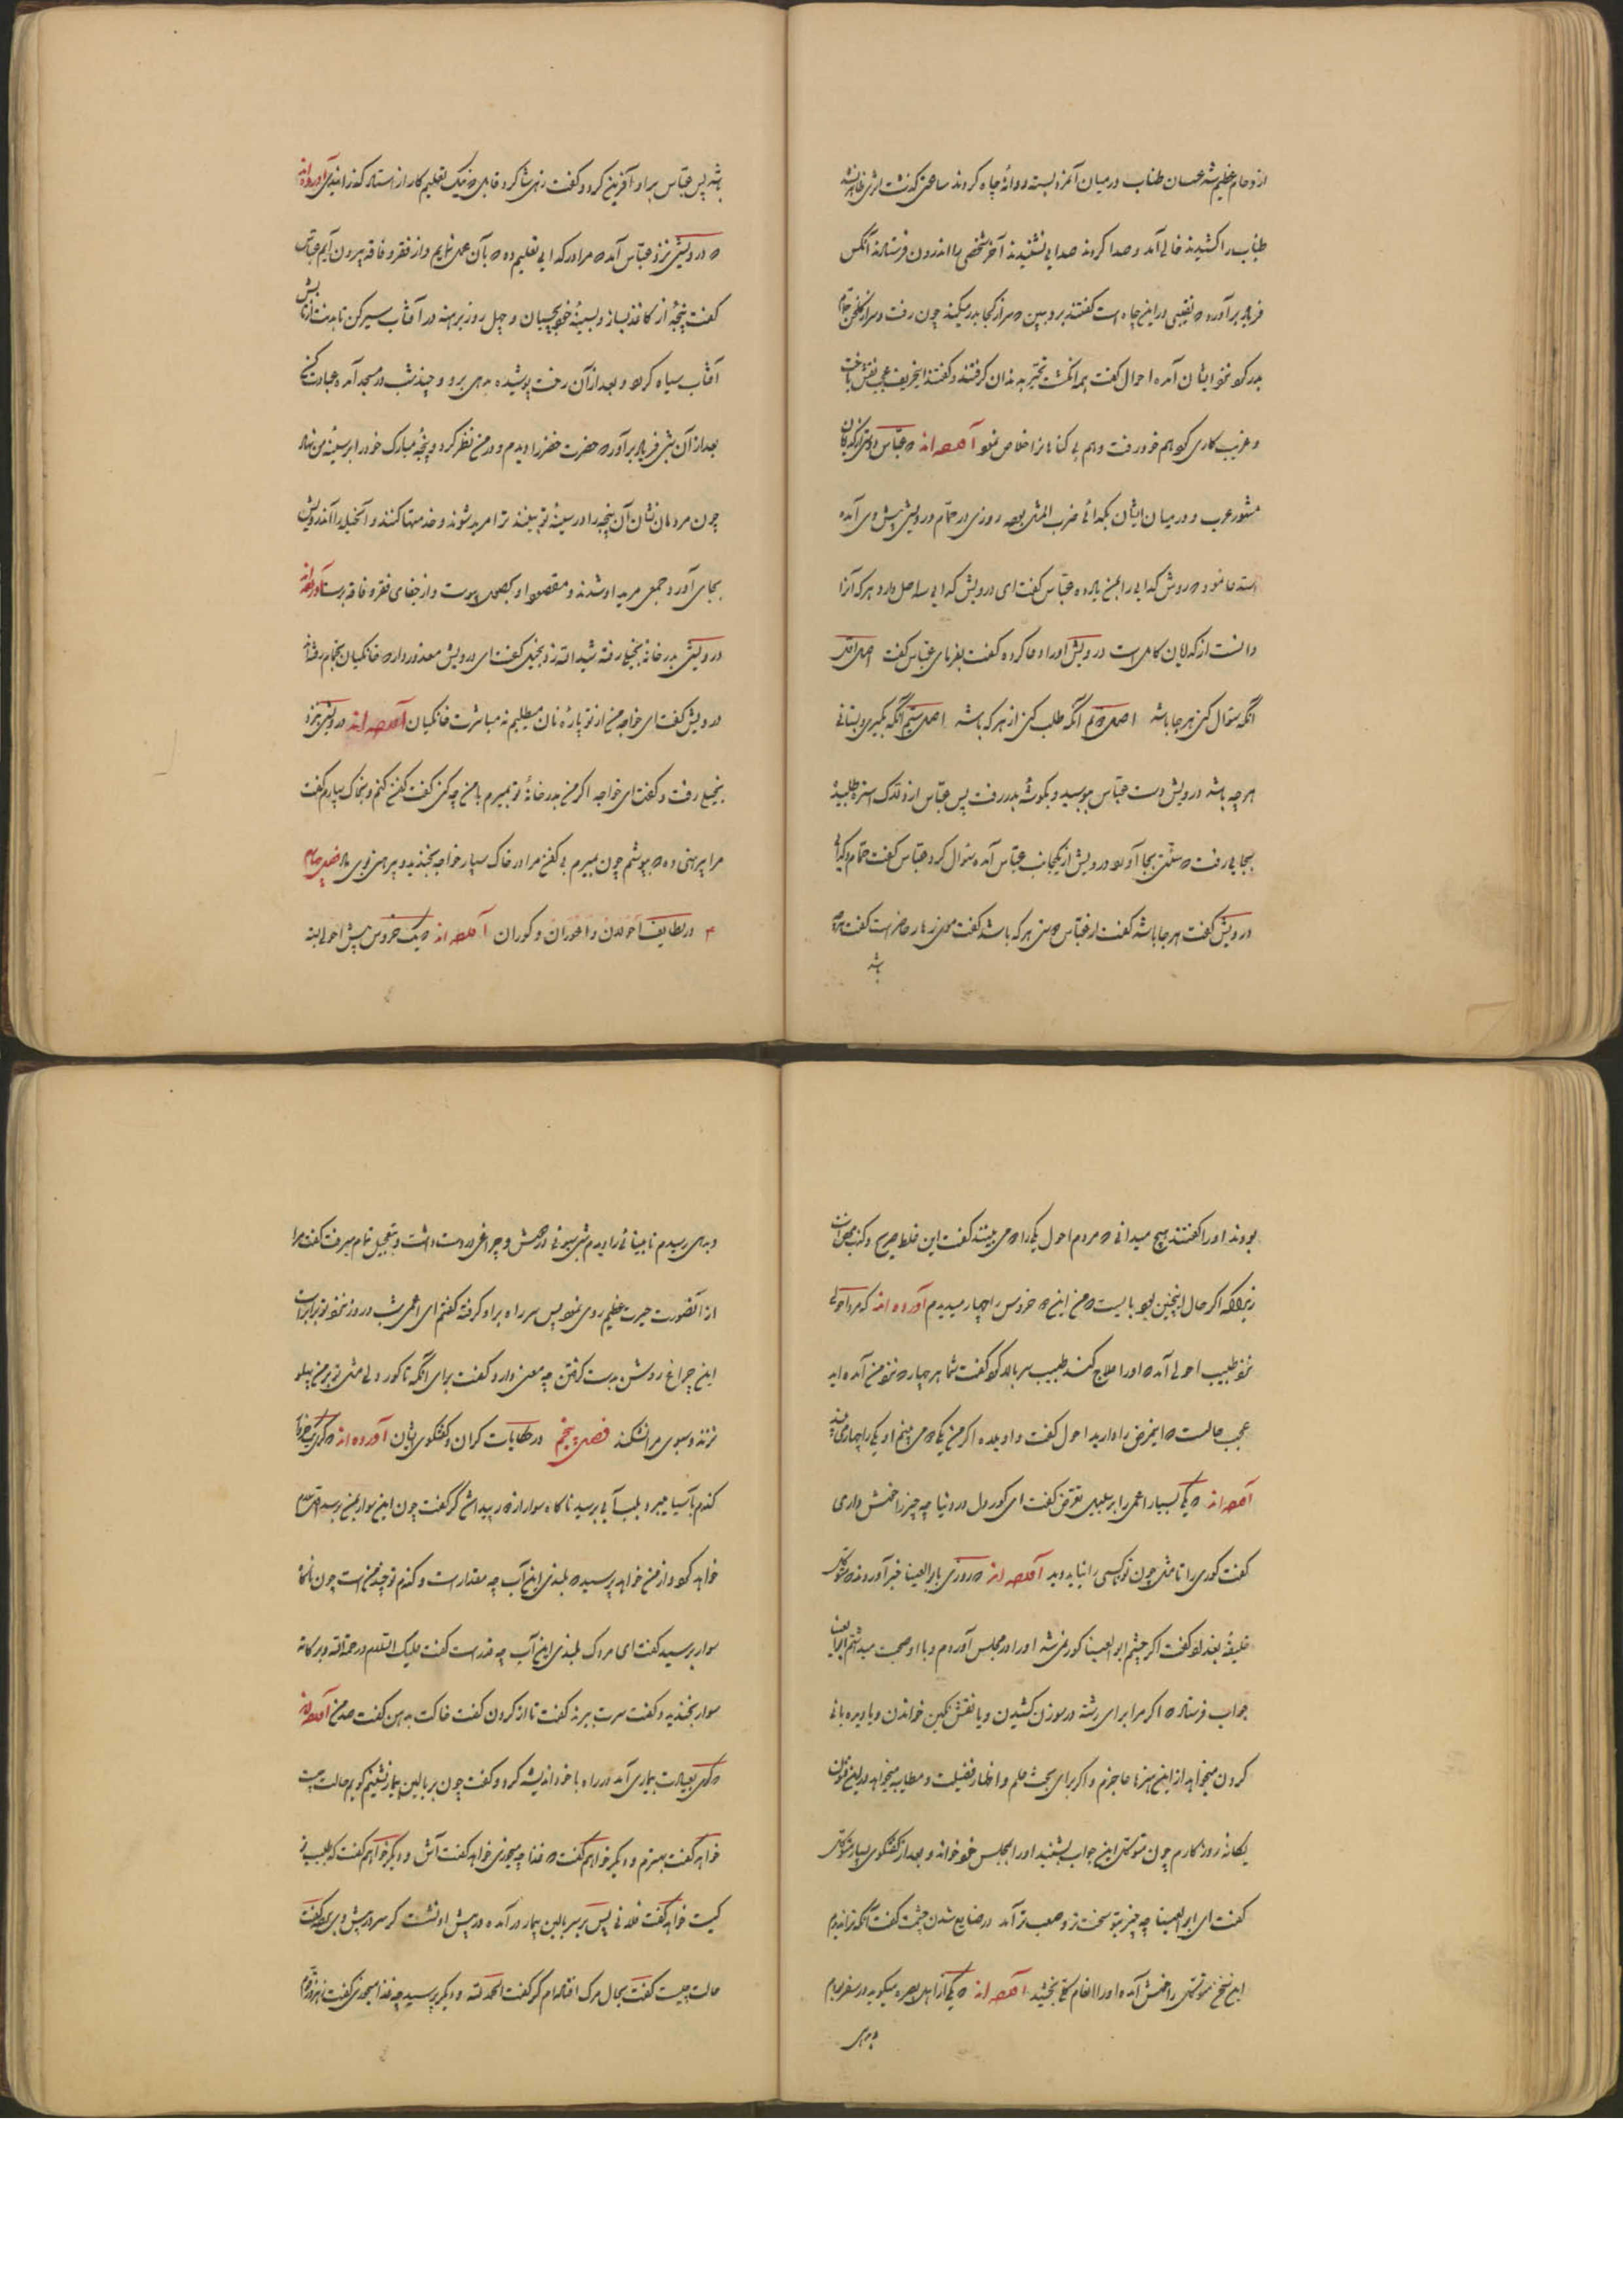 ازدحام عظیم شد عسسان طناب در میان آنمرد بسته روانهٔ چاه کردند ساعتی گذشت اثری ظاهر نشد
طناب را کشیدند خالی آمد و صدا کردند صدایی نشنیدند آخر شخصی را اندرون فرستادند آنکس
فریاد برآورد که نقبی در این چاه است گفتند برو ببین که سر از کجا بدر میکند چون رفت و سر از گلخن حمام
بدر کرد نزد ایشان آمده احوال گفت همه انگشت تحیر بدندان گرفتند و گفتند این حریف عجب نقشی باخت
و غریب کاری کرد هم خود رفت و هم بی گناهانرا خلاص نمود آورده اند که عباس دوس از گدایان
مشهور عرب و در میان ایشان بگدائی ضرب المثل بود روزی در حمام درویشی پیش وی آمده
استدعا نمود که روش گدایی را بمن یاد ده عباس گفت ای درویش گدایی سه اصل دارد هر که آنرا
دانست از گدایان کامل است درویش او را دعا کرده گفت بفرمای عباس گفت اصل اول
آنکه سئوال کنی هر جا باشد اصل دویم آنکه طلب کنی از هر که باشد اصل سیم آنکه بگیری و بستانی
هر چه باشد درویش دست عباس ببوسید و بگوشه بدر رفت پس عباس از دلاک استره طلبیده
بجایی رفت که سنتی بجا آورد درویش از یکجانب عباس آمده سئوال کرد عباس گفت حمام و گدائی
درویش گفت هر جا باشد گفت از عباس دوس هر که باشد گفت موی زهار حاضر است گفت هر چه
باشد
باشد پس عباس بر او آفرین کرد و گفت زهی شاگرد قابل که بیک تعلیم کار از استاد گذرانیدی آورده اند
که درویشی نزد عباس آمد که مرا در گدایی تعلیم ده که بآن عمل نمایم و از فقر و فاقه بیرون آیم عباس
گفت پنجهٔ از کاغذ بساز و بسینهٔ خود بچسبان و چهل روز برهنه در آفتاب سیر کن تا بدنت از تابش
آفتاب سیاه گردد و بعد از آن رخت پوشیده بدهی برو و چند شب در مسجد آمده عبادت کن
بعد از آن شبی فریاد برآور که حضرت خضر را دیدم و در من نظر کرد و پنجهٔ مبارک خود را بر سینهٔ من نهاد
چون مردمان نشان آن پنجه را در سینهٔ تو ببینند ترا مرید شوند و خدمتها کنند و آنحیله را آندرویش
بجای آورد جمعی مرید او شدند و مقصود او بحصول پیوست و از جفای فقر و فاقه برست آورده اند
درویشی بدر خانهٔ بخیلی رفته شیء الله زد بخیل گفت ای درویش معذور دار که خانگیان بحمام رفته اند
درویش گفت ای خواجه من از تو پارهٔ نان میطلبم نه مباشرت خانگیان آورده اند درویشی نزد
بخیلی رفت و گفت ای خواجه اگر من بدر خانهٔ تو بمیرم با من چه کنی گفت کفن کنم و بخاک سپارم گفت
مرا پیرهنی ده که بپوشم چون بمیرم بی کفن مرا در خاک سپار خواجه بخندید و پیرهنی بوی داد فصل چهارم
در لطایف احولان و اعوران و کوران آورده اند که یک خروس پیش احولی بسته
بودند او را گفتند هیچ میدانی که مردم احول یکی را دو می بینند گفت این غلط صریح و کذب محض است
زیرا که اگر حال اینچنین بود بایست که من این دو خروس را چهار میدیدم آورده اند که مرد احولی
نزد طبیب احولی آمد که او را علاج کند طبیب سر بالا کرد گفت شما هر چهار که نزد من آمده اید
عجب حالست که اینمرض را دارید احول گفت واویلاه اگر من یکی دو می بینم او یکی را چهار می بیند
آورده اند که یکی بسیار اعمی را بر سبیل تعرض گفت ای کور دل در دنیا چه چیز را خوش داری
گفت کوری را تا مثل چون تو کسی را نباید دید آورده اند که روزی بابوالعینا خبر آوردند که متوکل
خلیفهٔ بغداد گفت اگر چشم ابوالعینا کور نمی شد او را در مجلس آوردم و با او صحبت میداشتم ابوالعینا
جواب فرستاد که اگر مرا برای رشته در سوزن کشیدن و یا نقش نگین خواندن و یا دیده بانی
کردن میخواهد از این هنرها عاجزم و اگر برای بحث علم و اظهار فضیلت و مطایبه میخواهد در این فنون
یگانهٔ روزگارم چون متوکل این جواب بشنید او را بمجلس خود خواند و بعد از گفتگوی بسیار متوکل
گفت ای ابوالعینا چه چیز بتو سخت تر و صعب تر آمد در ضایع شدن چشمت گفت آنکه ترا ندیدم
این سخن متوکل را خوش آمده او را انعام کلی بخشید آورده اند که یکی از اهل بصره میگوید در سفر بودم
و بدهی
و بدهی رسیدم نابینائی را دیدم شبی سبوئی در دوش و چراغی در دست داشت و بتعجیل تمام میرفت گفت مرا
از آنصورت حیرت عظیم روی نمود پس سر راه بر او گرفته گفتم ای اعمی شب و روز نزد تو برابر است
این چراغ روشن بدست گرفتن چه معنی دارد گفت برای آنکه تا کور دلی مثل تو بر من پهلو
نزند و سبوی مرا نشکند فصل پنجم در حکایات کران و گفتگوی ایشان آورده اند که کری خر
گندم بآسیا میبرد بلب آبی رسید ناگاه سواری از دور پیدا شد کر گفت چون این سوار بمن برسد اول سلام
خواهد کرد و از من خواهد پرسید که بلندی این آب چه مقدار است و گندم تو چند من است چون
سوار برسید گفت ای مردک بلندی این آب چه قدر است گفت علیک السلام و رحمة الله و برکاته
سوار بخندید و گفت سرت ببرند گفت تا از گردن گفت خاکت بدهن گفت صد من آورده اند
که کری بعیادت بیماری آمد در راه با خود اندیشه کرد و گفت چون بر بالین بیمار نشینم گویم حالت چیست
خواهد گفت بهترم و دیگر خواهم گفت که غذا چه میخوری خواهد گفت آش و دیگر خواهم گفت که طبیب تو
کیست خواهد گفت فلانی پس بر سر بالین بیمار درآمده در پیش او نشست کر سر در پیش وی برد و گفت
حالت چیست گفت بحال مرگ افتاده ام کر گفت الحمد لله و دیگر پرسید چه غذا میخوری گفت زهر